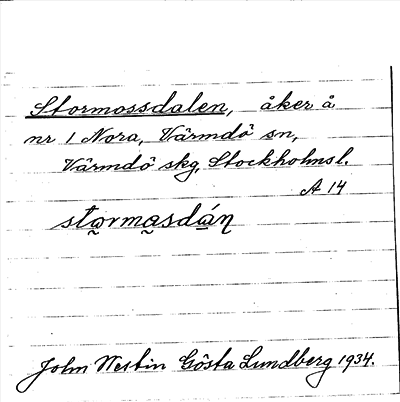 Stormossdalen, åker å
nr 1 Nora, Värmdö sn,
Värmdö skg, Stockholmsl.
A 14
stormasdáṇ
John Westin Gösta Lundberg 1934.